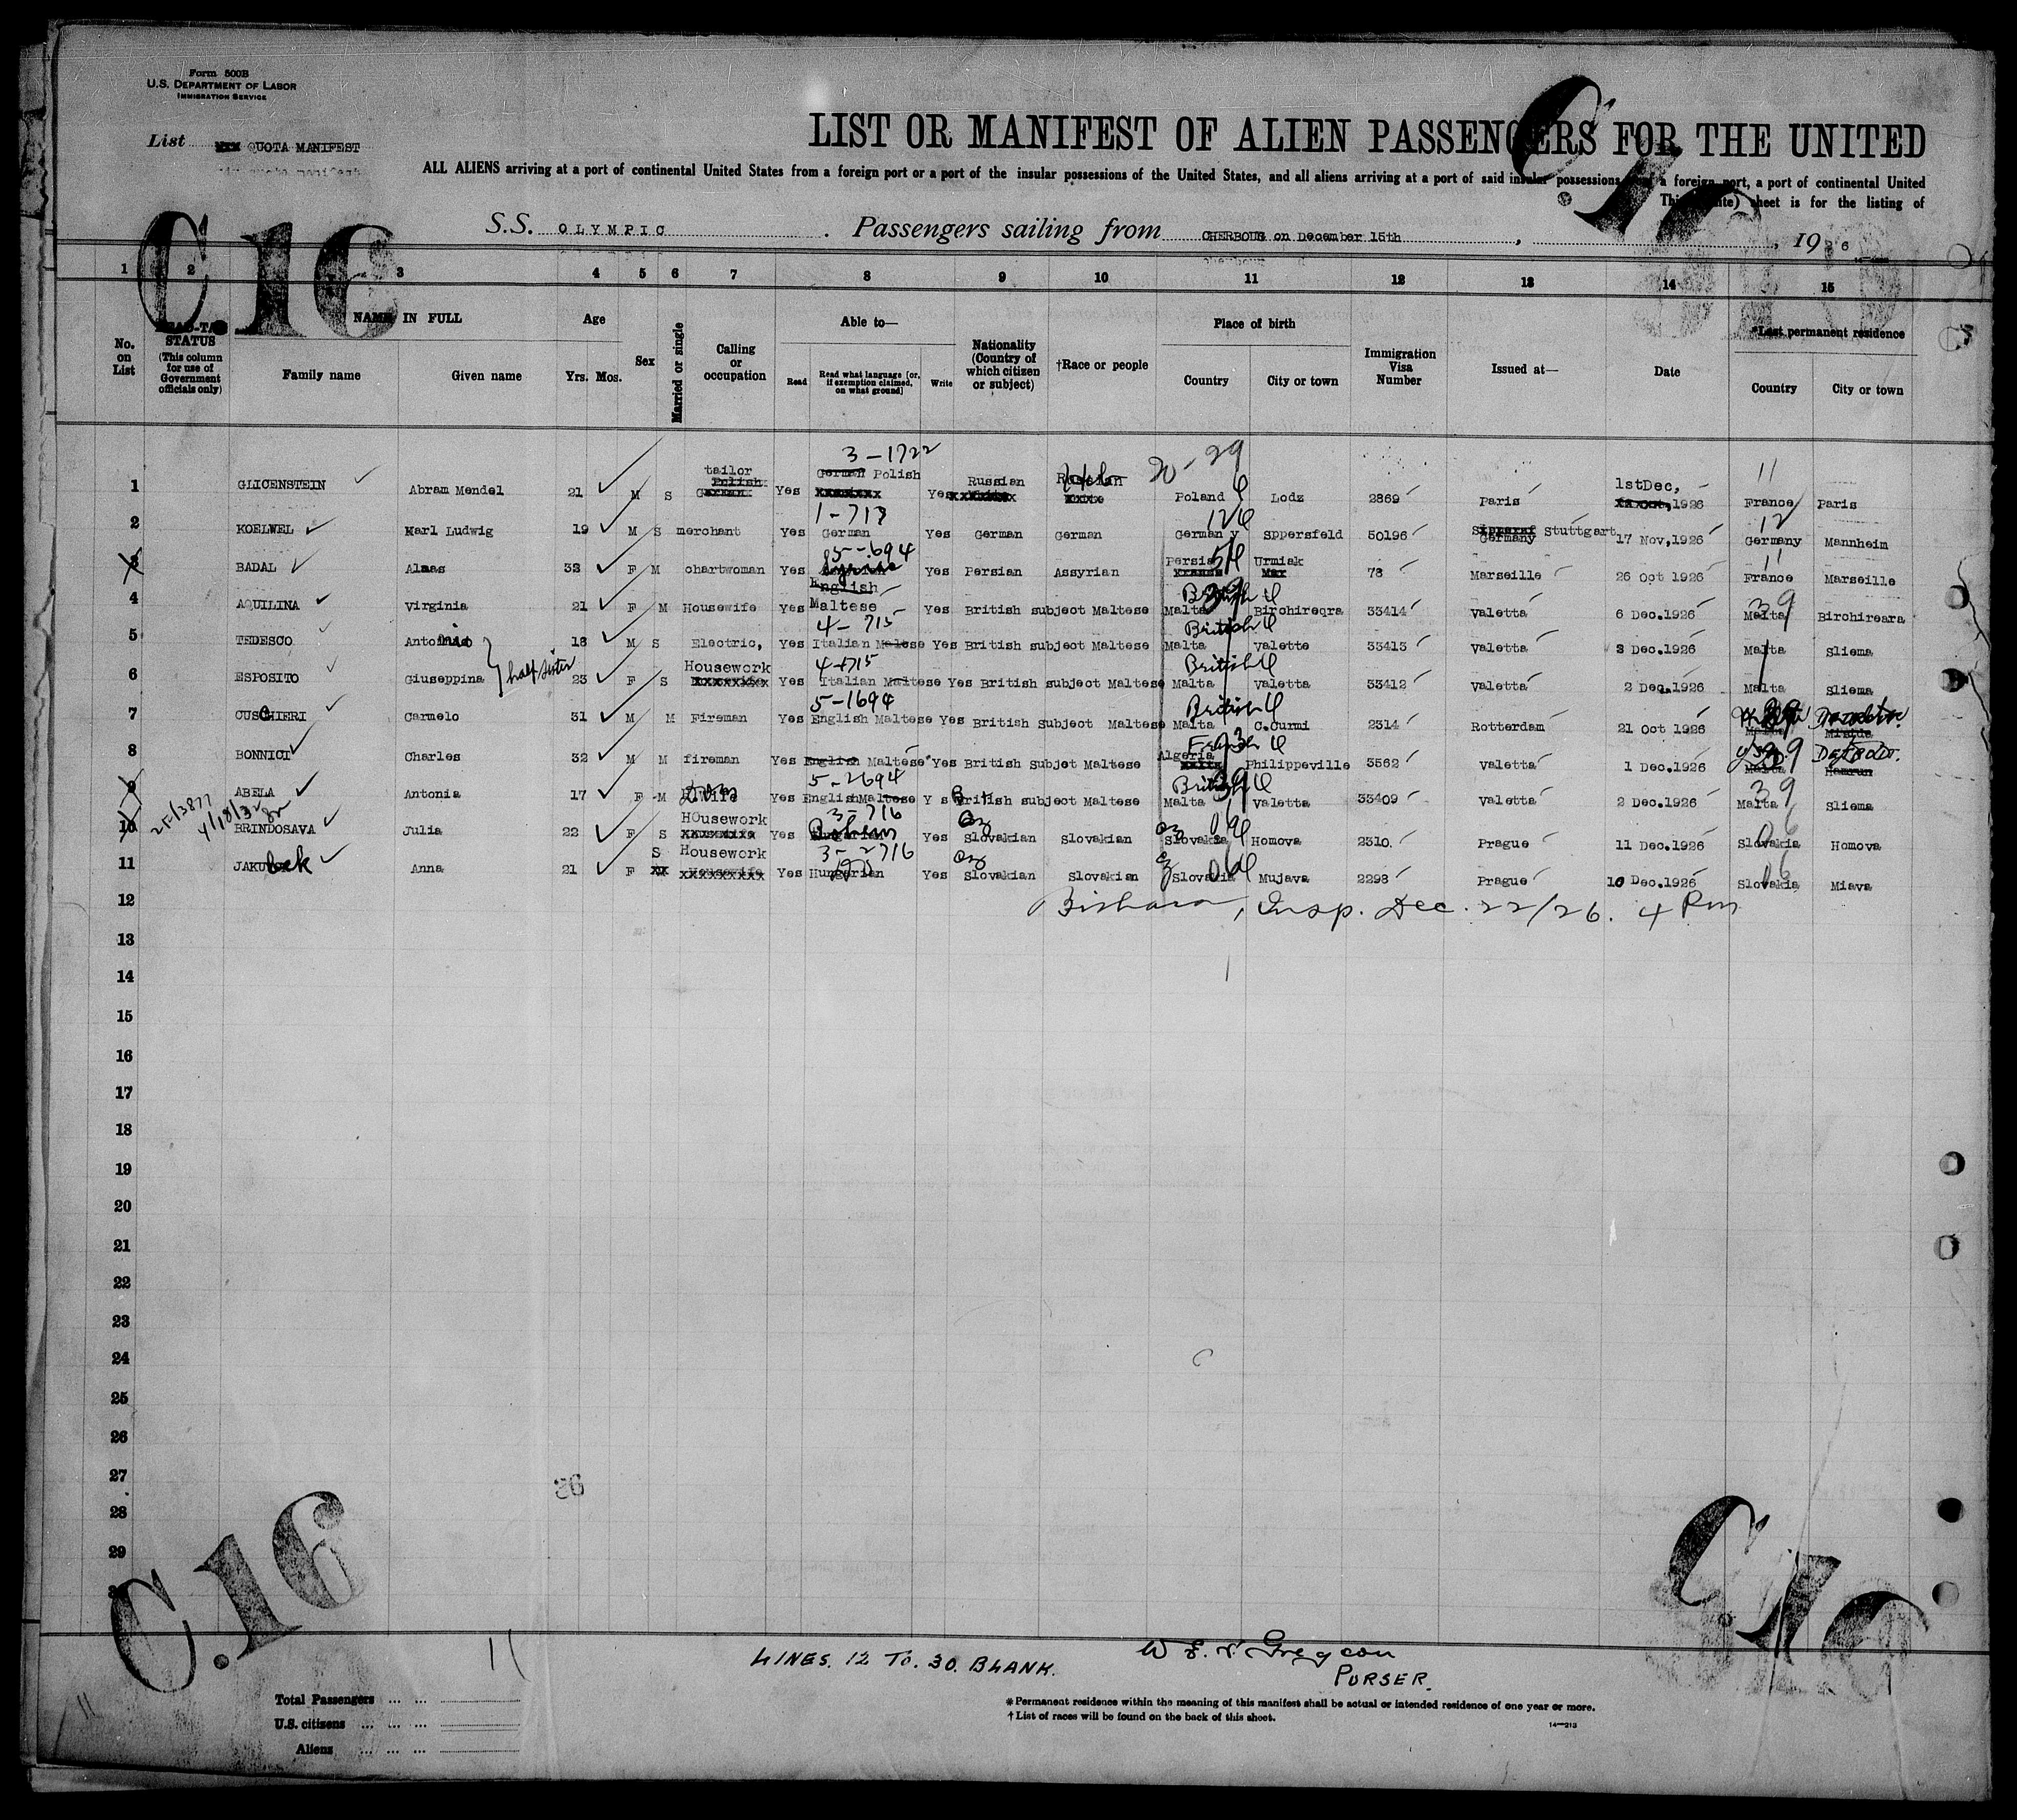 Form 500B
U.S. DEPARTMENT OF LABOR
IMMIGRATION SERVICE
List QUOTA MANIFEST
LIST OR MANIFEST OF ALIEN PASSENGERS FOR THE UNITED
ALL ALIENS arriving at a port of continental United States from a foreign port or a port of the insular possessions of the United States, and all aliens arriving at a port of said insular possessions a foreign port, a port of continental United
sheet is for the listing of
C 16
S.S. OLYMPIC. Passengers sailing from CHERBOUG on December 15th, 1926
1 2 3 4 5 6 7 8 9 10 11 12 13 14 15
No. on List
HEAD-TAX STATUS (This column for use of Government officials only)
NAME IN FULL
Family name Given name
Age
Yrs. Mos.
Sex
Married or single
Calling or occupation
Able to—
Read Read what language [or, if exemption claimed, on what ground] Write
Nationality (Country of which citizen or subject)
†Race or people
Place of birth
Country City or town
Immigration Visa Number
Issued at—
Date
*Last permanent residence
Country City or town
3-1722 29 11
1 GLICENSTEIN Abram Mendel 21 M S tailor Yes German Polish Yes Russian Poland Lodz 2869 Paris 1stDec, 1926 France Paris
2 KOELWEL Karl Ludwig 19 M S merchant Yes German Yes German German Germany Sppersfeld 50196 Stuttgart 17 Nov,1926 Germany Mannheim
5-694
3 BADAL Almas 32 F M chartwoman Yes Yes Persian Assyrian Persia Urmiak 78 Marseille 26 Oct 1926 France Marseille
4 AQUILINA Virginia 21 F M Housewife Yes English Maltese Yes British subject Maltese British Malta Birchireqra 33414 Valetta 6 Dec.1926 Malta Birchireara
4-715
5 TEDESCO Antonio 18 M S Electric, Yes Italian Maltese Yes British subject Maltese British Malta Valette 33413 Valetta 2 Dec.1926 Malta Sliema
half sister
4-715
6 ESPOSITO Giuseppina 23 F S Housework Yes Italian Maltese Yes British subject Maltese British Malta Valetta 33412 Valetta 2 Dec.1926 Malta Sliema
5-1694
7 CUSCHIERI Carmelo 31 M M Fireman Yes English Maltese Yes British Subject Maltese British Malta C.Curmi 2314 Rotterdam 21 Oct 1926
8 BONNICI Charles 32 M M fireman Yes English Maltese Yes British Subject Maltese French Algeria Philippeville 3562 Valetta 1 Dec.1926 Malta Detroit. Hamrun
5-2694
9 ABELA Antonia 17 F M Yes English Maltese Y s British subject Maltese British Malta Valetta 33409 Valetta 2 Dec.1926 Malta Sliema
2F/13877 4/18/32
3-716
10 BRINDOSAVA Julia 22 F S Housework Yes Yes Slovakian Slovakian Slovakia Homova 2310. Prague 11 Dec.1926 Slovakia Homova
3-2716
11 JAKUbek Anna 21 F S Housework Yes Hungarian Yes Slovakian Slovakian Slovakia Mujava 2298 Prague 10 Dec.1926 Slovakia Miava
12 Bishara, Insp. Dec. 22/26. 4 Pm
13
14
15
16
17
18
19
20
21
22
23
24
25
26
27
28
29
26
C.16
11
LINES. 12 TO. 30. BLANK.
PURSER.
Total Passengers ... ...
U.S. citizens ... ... ...
Aliens ... ... ...
* Permanent residence within the meaning of this manifest shall be actual or intended residence of one year or more.
† List of races will be found on the back of this sheet.
14—213